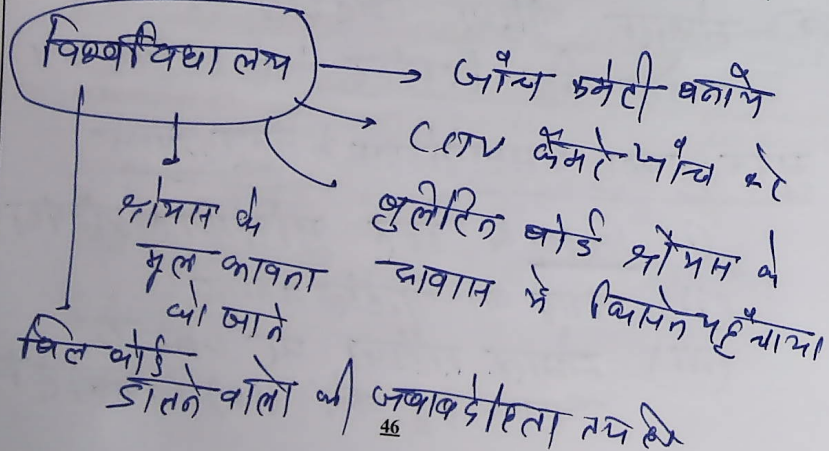 विश्वविद्यालय
जाँच कमेटी बनाये
CCTV कैमरे जाँच करे
बुलेटिन बोर्ड श्रेयास के
छावास मे किसने पहुँचाया
श्रेयास के
मूल भावना
को जाने
बिल बोर्ड
डालने वालो की जबाबदेहिता तय हो
46